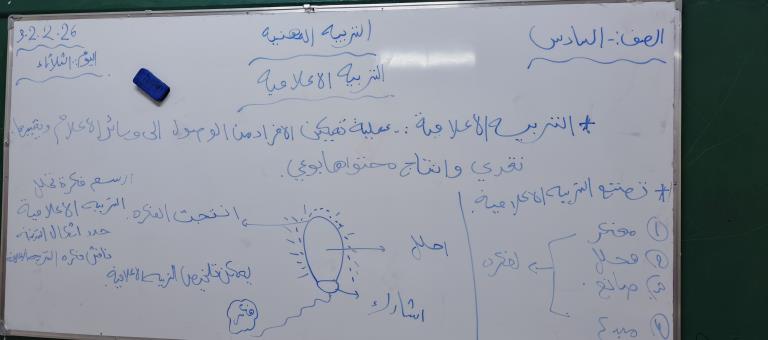 الصف:- السادس
التربية المهنية
3.2.2.26
اليوم:- الثلاثاء
التربية الاعلامية
* التربية الاعلامية :- عملية تمكين الافراد من الوصول الى وسائل الاعلام وتقييمها
نقدي وانتاج محتواها بوعي.
* تصنع التربية الاعلامية
① مفكر
② محلل
③ صانع
④ مبدع
لفكره
احلل
اشارك
انتجت الفكره
فكر
يمكن تلخيص التربية الاعلامية
ارسم فكرة
التربية الاعلامية
حدد اشكال
ناقش فكره التربية